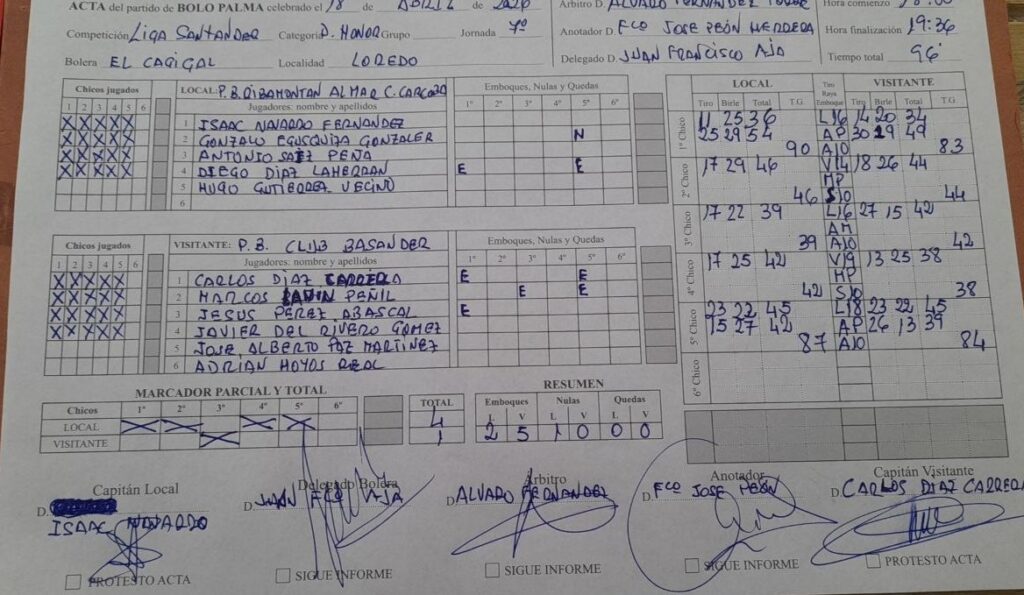 ACTA del partido de BOLO PALMA celebrado el 18 de ABRIL de 2026
Competición LIGA SANTANDER Categoría D. HONOR Grupo Jornada 7º
Bolera EL CAGIGAL Localidad LOREDO
Árbitro D. ALVARO FERNANDEZ
Anotador D. Fco JOSE PEÓN HERRERA
Delegado D. JUAN FRANCISCO AJA
Hora comienzo 18:00
Hora finalización 19:36
Tiempo total 96'
Chicos jugados
1 2 3 4 5 6
X X X X X
X X X X X
X X X X X
X X X X X
LOCAL: P.B. RIBAMONTAN AL MAR C. CARCOBA
Jugadores: nombre y apellidos
1 ISAAC NAVARDO FERNANDEZ
2 GONZALO EGUSQUIZA GONZALEZ
3 ANTONIO SAIZ PEÑA
4 DIEGO DIAZ LAHERRAN
5 HUGO GUTIERREZ VECINO
6
Emboques, Nulas y Quedas
1º 2º 3º 4º 5º 6º
N
E E
Chicos jugados
1 2 3 4 5 6
X X X X X
X X X X X
X X X X X
X X X X X
VISITANTE: P.B. CLUB BASANDER
Jugadores: nombre y apellidos
1 CARLOS DIAZ CARRERA
2 MARCOS LAVIN PEÑIL
3 JESUS PEREZ ABASCAL
4 JAVIER DEL RIVERO GOMEZ
5 JOSE ALBERTO PAZ MARTINEZ
6 ADRIAN HOYOS REAL
Emboques, Nulas y Quedas
1º 2º 3º 4º 5º 6º
E E
E E
E
LOCAL Tiro Raya Emboque VISITANTE
Tiro Birle Total T.G. Tiro Birle Total T.G.
1º Chico
11 25 36 L16 14 20 34
25 29 54 AP 30 19 49
90 A10 83
2º Chico
17 29 46 V14 18 26 44
MP
46 S10 44
3º Chico
17 22 39 L16 27 15 42
AM
39 A10 42
4º Chico
17 25 42 V19 13 25 38
MP
42 S10 38
5º Chico
23 22 45 L18 23 22 45
15 27 42 AP 26 13 39
87 A10 84
6º Chico
MARCADOR PARCIAL Y TOTAL
Chicos 1º 2º 3º 4º 5º 6º TOTAL
LOCAL X X X X 4
VISITANTE X 1
RESUMEN
Emboques Nulas Quedas
L V L V L V
2 5 1 0 0 0
Capitán Local
D.
ISAAC NAVARDO
PROTESTO ACTA
Delegado Bolera
D. JUAN FCO AJA
SIGUE INFORME
Árbitro
D. ALVARO FERNANDEZ
SIGUE INFORME
Anotador
D. Fco JOSE PEÓN
SIGUE INFORME
Capitán Visitante
D. CARLOS DIAZ CARRERA
PROTESTO ACTA